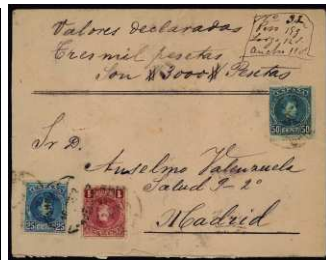 Valores declarados
Tres mil pesetas
Son $3000$ Pesetas
Nº 32
ESPAÑA
50 50
Sr D.
Anselmo Valenzuela
Salud 9-2º
Madrid
25 25